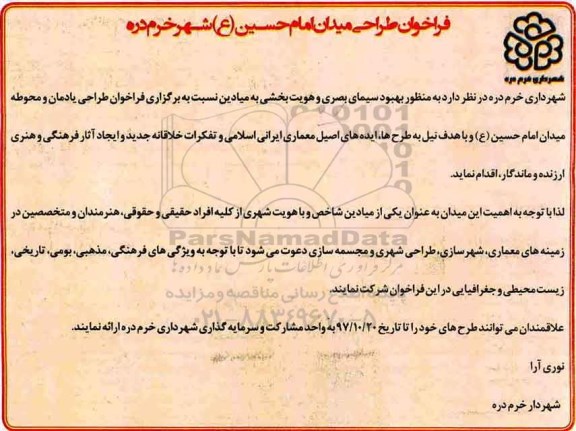 فراخوان طراحی میدان امام حسین (ع) شهر خرم دره
شهرداری خرم دره
شهرداری خرم دره در نظر دارد به منظور بهبود سیمای بصری و هویت بخشی به میادین نسبت به برگزاری فراخوان طراحی یادمان و محوطه
میدان امام حسین (ع) و با هدف نیل به طرح ها، ایده های اصیل معماری ایرانی اسلامی و تفکرات خلاقانه جدید و ایجاد آثار فرهنگی و هنری
ارزنده و ماندگار، اقدام نماید.
لذا با توجه به اهمیت این میدان به عنوان یکی از میادین شاخص و با هویت شهری از کلیه افراد حقیقی و حقوقی، هنرمندان و متخصصین در
ParsNamadData
زمینه های معماری، شهرسازی، طراحی شهری و مجسمه سازی دعوت می شود تا با توجه به ویژگی های فرهنگی، مذهبی، بومی، تاریخی،
زیست محیطی و جغرافیایی در این فراخوان شرکت نمایند.
۰۲۱-۸۸۳۴۹۶۷۰-۵
علاقمندان می توانند طرح های خود را تا تاریخ ۹۷/۱۰/۲۰ به واحد مشارکت و سرمایه گذاری شهرداری خرم دره ارائه نمایند.
نوری آرا
شهردار خرم دره